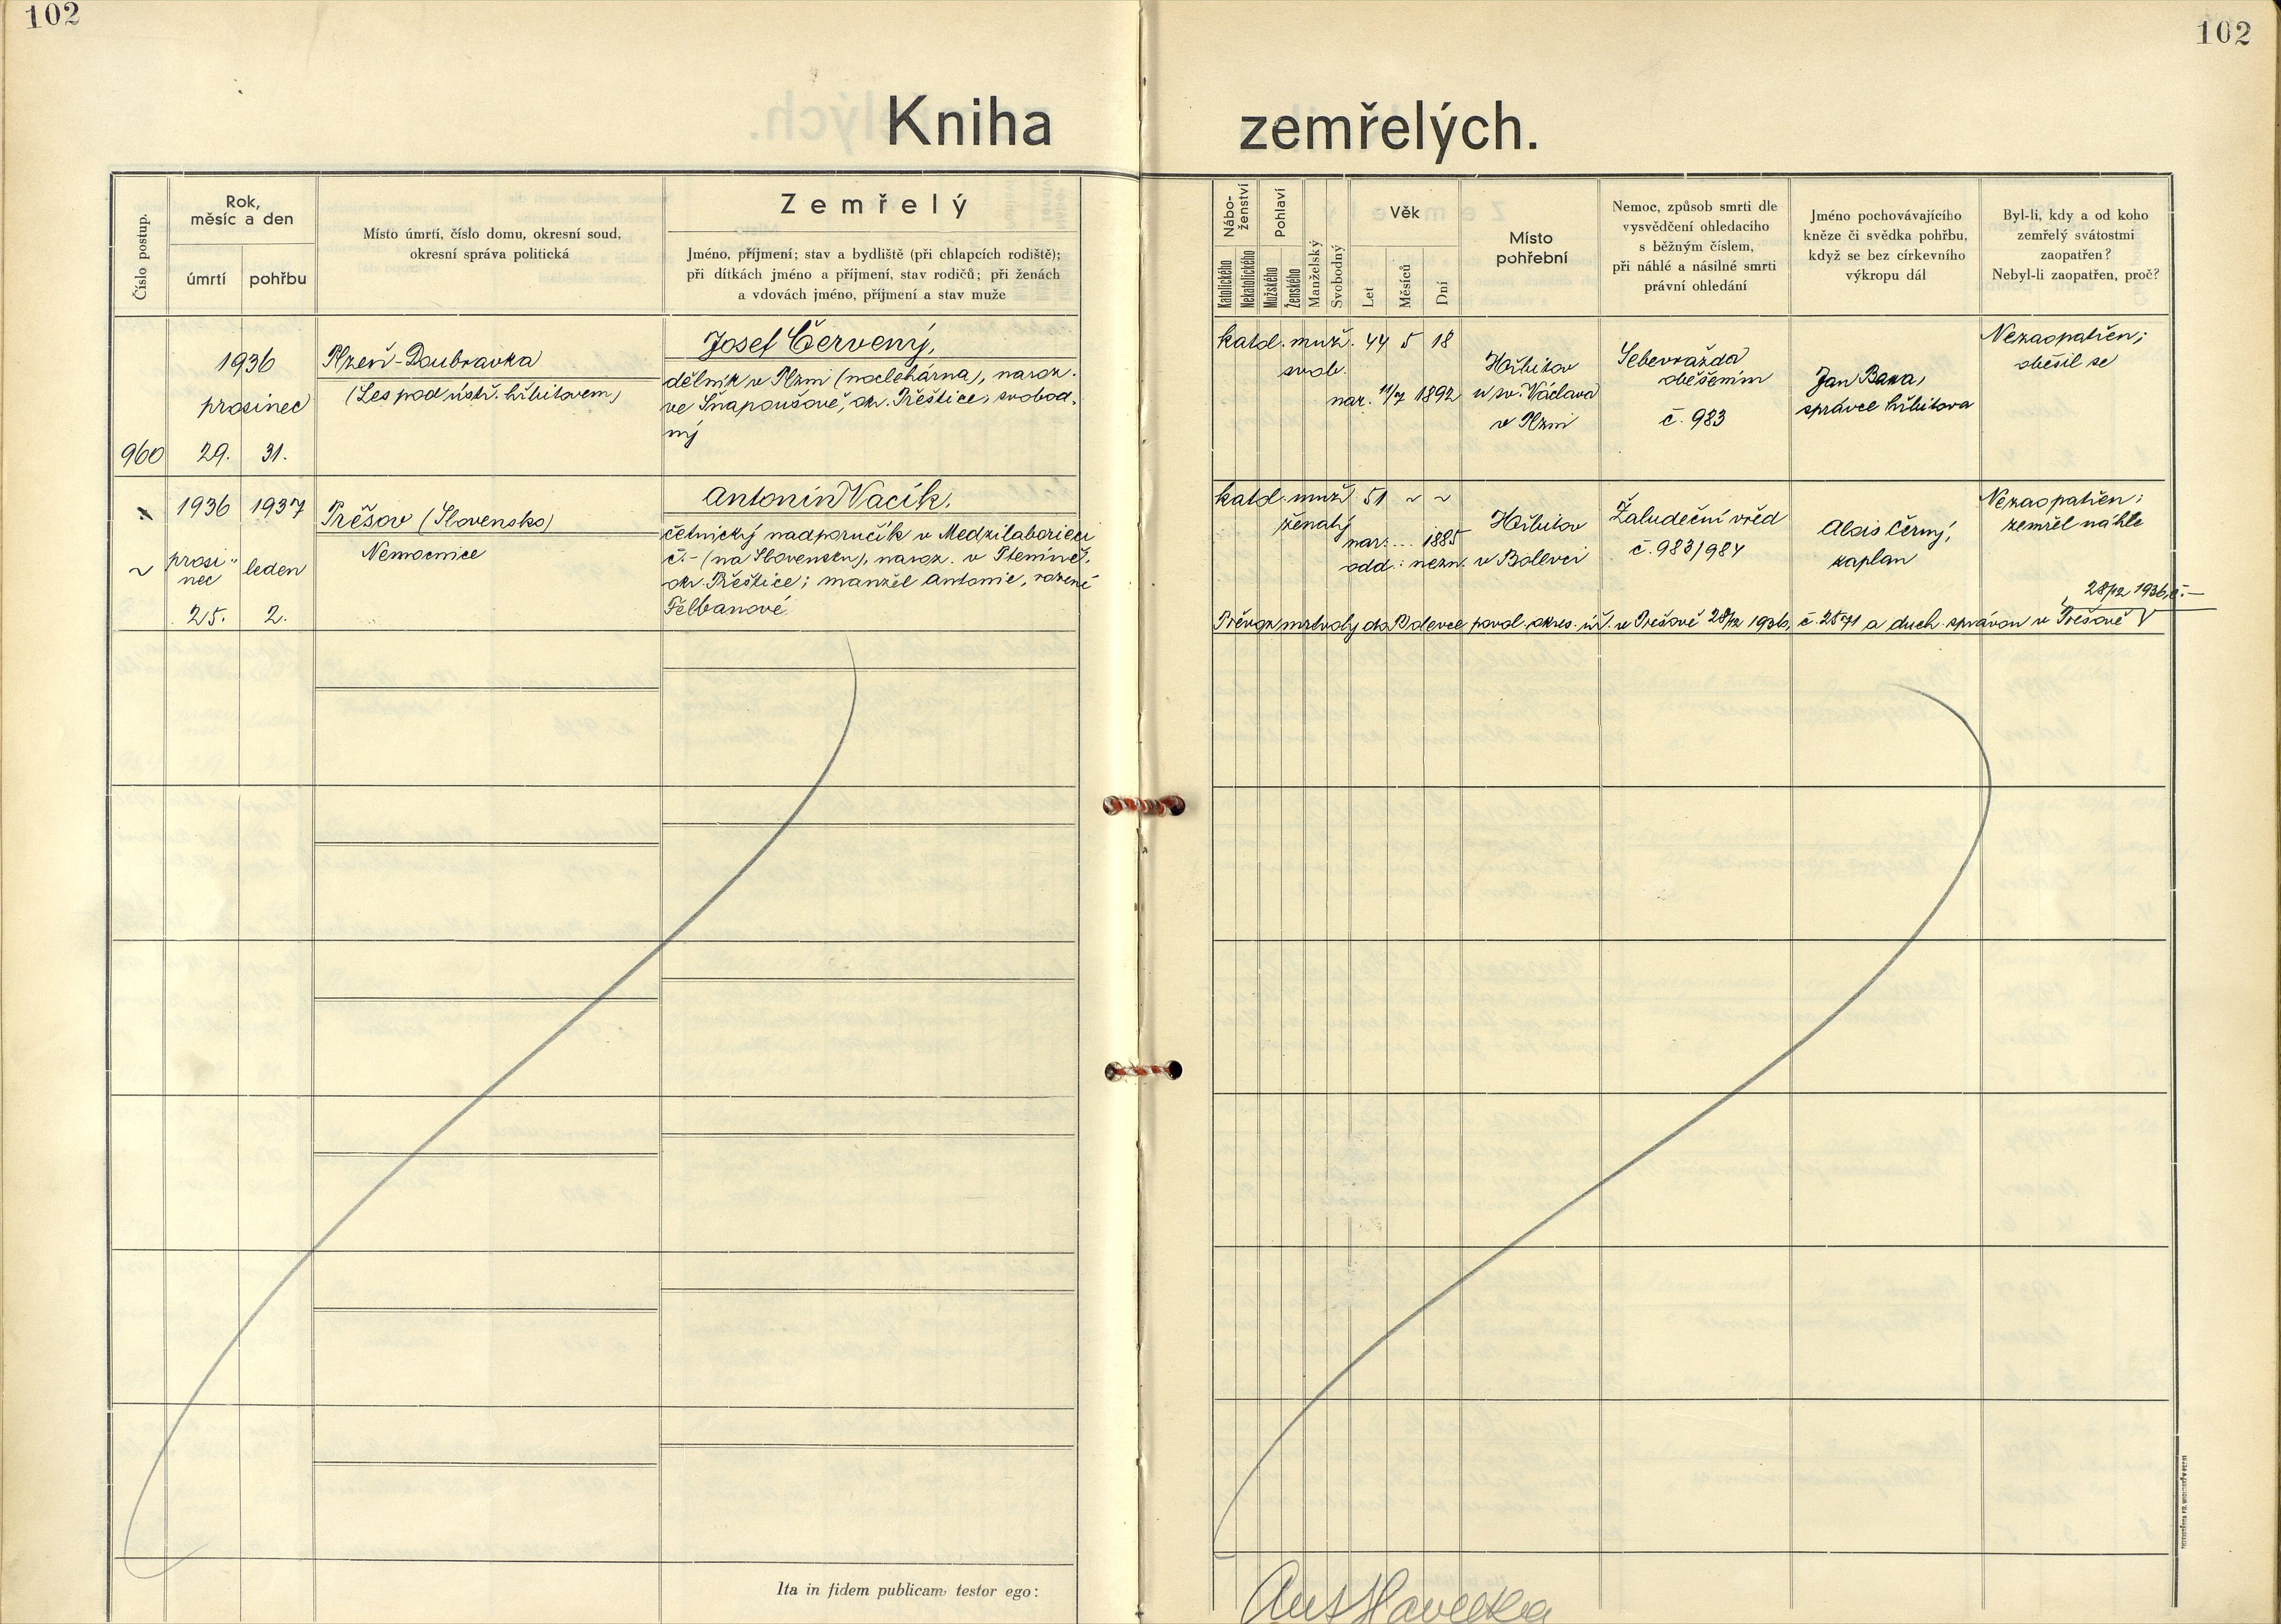 102
102
Kniha zemřelých.
Číslo postup.
Rok,
měsíc a den
úmrtí
pohřbu
Místo úmrtí, číslo domu, okresní soud,
okresní správa politická
Zemřelý
Jméno, příjmení; stav a bydliště (při chlapcích rodiště);
při dítkách jméno a příjmení, stav rodičů; při ženách
a vdovách jméno, příjmení a stav muže
Nábo-
ženství
Katolického
Nekatolického
Pohlaví
Mužského
Ženského
Manželský
Svobodný
Věk
Let
Měsíců
Dní
Místo
pohřební
Nemoc, způsob smrti dle
vysvědčení ohledacího
s běžným číslem,
při náhlé a násilné smrti
právní ohledání
Jméno pochovávajícího
kněze či svědka pohřbu,
když se bez církevního
výkropu dál
Byl-li, kdy a od koho
zemřelý svátostmi
zaopatřen?
Nebyl-li zaopatřen, proč?
960
1936
prosinec
29. 31.
Plzeň-Doubravka
(Les pod ústř. hřbitovem)
Josef Červený,
dělník v Plzni (noclehárna), naroz.
ve Snapoušově, okr. Přeštice, svobod.
ný
katol. muž. 44 5 18
svob.
nar. 11/7 1892
Hřbitov
u sv. Václava
v Plzni
Sebevražda
oběšením
č. 983
Jan Baxa,
správce hřbitova
Nezaopatřen;
oběsil se
~
1936 1937
prosi-
nec
leden
25. 2.
Prešov (Slovensko)
Nemocnice
Antonín Vacík,
četnický nadporučík v Medzilaborieci
č. - (na Slovensku), naroz. v Pteníně,
okr. Přeštice; manžel Antonie, rozené
Felbanové
katol. muž. 51 ~ ~
ženatý
nar. ... 1885
odd.: nezn.
Hřbitov
v Bolevci
Žaludeční vřed
č. 983/984
Alois Černý,
kaplan
Nezaopatřen;
zemřel náhle
28/12 1936, č. —
Převoz mrtvoly do Bolevce povol. okres. úř. v Prešově 28/12 1936, č. 2571 a duch. správou v Prešově
Ita in fidem publicam testor ego:
Ant Havelka